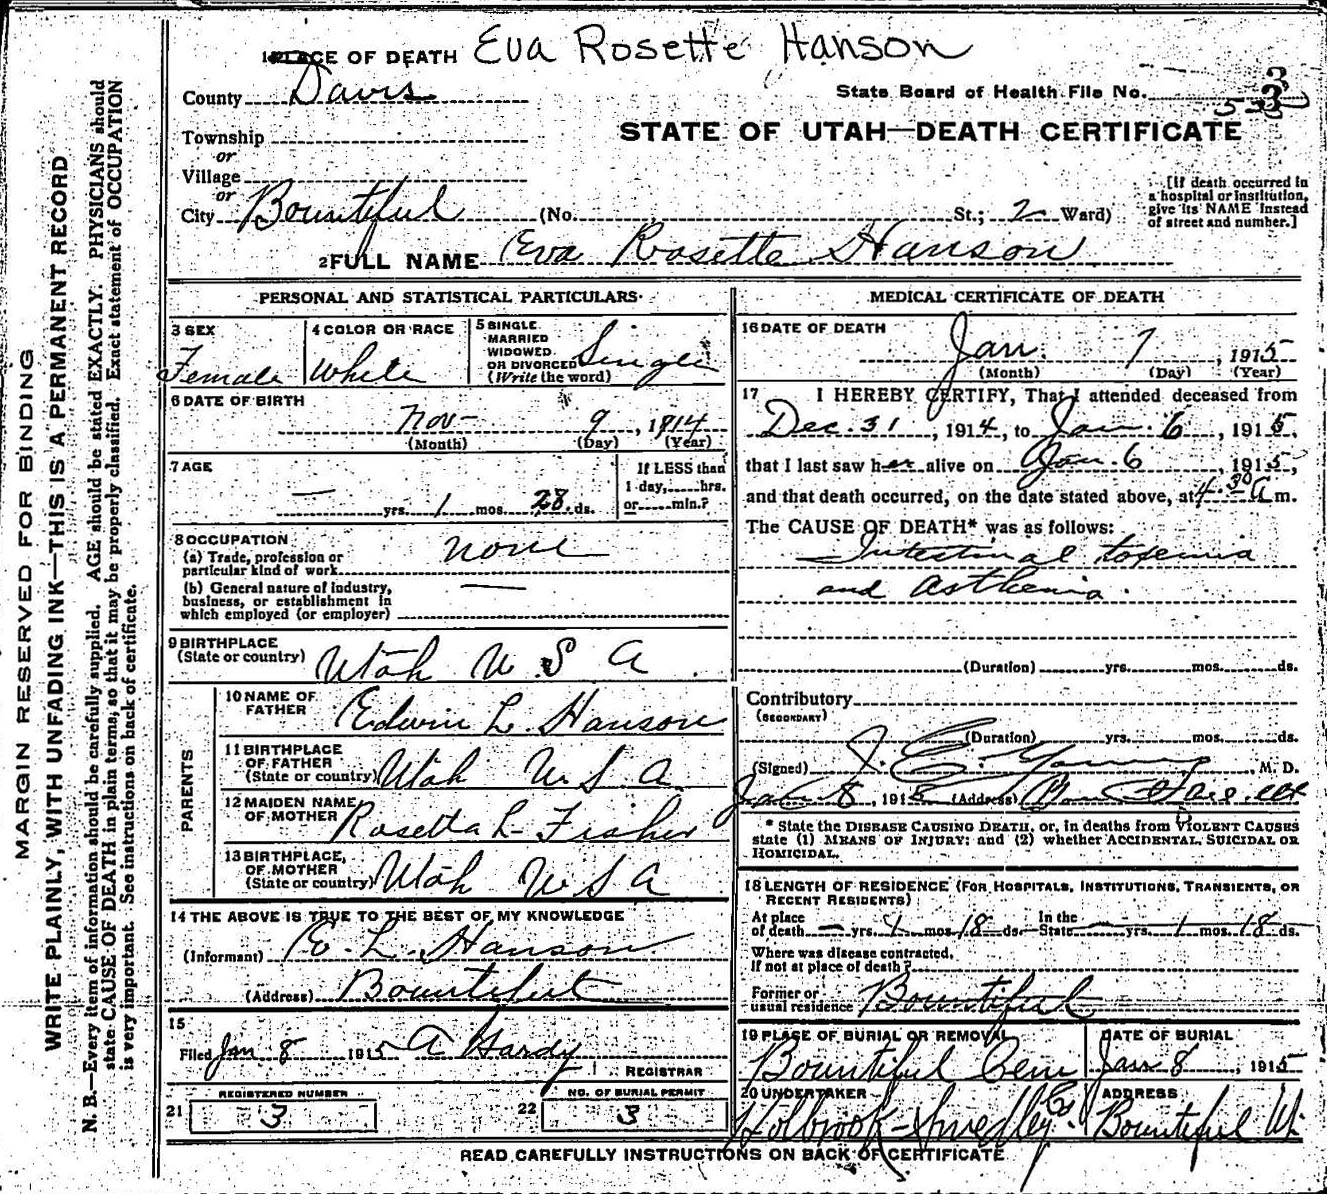 MARGIN RESERVED FOR BINDING
WRITE PLAINLY, WITH UNFADING INK—THIS IS A PERMANENT RECORD
N. B.—Every item of information should be carefully supplied. AGE should be stated EXACTLY. PHYSICIANS should
state CAUSE OF DEATH in plain terms, so that it may be properly classified. Exact statement of OCCUPATION
is very important. See instructions on back of certificate.
1 PLACE OF DEATH Eva Rosette Hanson
County Davis
State Board of Health File No. 3
Township
STATE OF UTAH—DEATH CERTIFICATE
or
Village
or
City Bountiful (No. St.; 2 Ward)
[If death occurred in
a hospital or institution,
give its NAME instead
of street and number.]
2 FULL NAME Eva Rosette Hanson
PERSONAL AND STATISTICAL PARTICULARS
3 SEX Female
4 COLOR OR RACE White
5 SINGLE
MARRIED
WIDOWED
OR DIVORCED
(Write the word) Single
6 DATE OF BIRTH
Nov- 9, 1914
(Month) (Day) (Year)
7 AGE
— yrs. 1 mos. 28 ds.
If LESS than
1 day, hrs.
or min.?
8 OCCUPATION
(a) Trade, profession or
particular kind of work none
(b) General nature of industry,
business, or establishment in
which employed (or employer) —
9 BIRTHPLACE
(State or country) Utah U S A
PARENTS
10 NAME OF
FATHER Edwin L. Hanson
11 BIRTHPLACE
OF FATHER
(State or country) Utah U. S. A.
12 MAIDEN NAME
OF MOTHER Rosetta L- Fisher
13 BIRTHPLACE
OF MOTHER
(State or country) Utah U S A
14 THE ABOVE IS TRUE TO THE BEST OF MY KNOWLEDGE
(Informant) E. L. Hanson
(Address) Bountiful
15
Filed Jan 8 1915 A Hardy
REGISTRAR
REGISTERED NUMBER
21 3
NO. OF BURIAL PERMIT
22 3
MEDICAL CERTIFICATE OF DEATH
16 DATE OF DEATH
Jan. 7, 1915
(Month) (Day) (Year)
17 I HEREBY CERTIFY, That I attended deceased from
Dec. 31, 1914, to Jan. 6, 1915,
that I last saw her alive on Jan. 6, 1915,
and that death occurred, on the date stated above, at 4.30 a m.
The CAUSE OF DEATH* was as follows:
Intestinal toxemia
and asthenia.
(Duration) yrs. mos. ds.
Contributory
(SECONDARY)
(Duration) yrs. mos. ds.
(Signed) J. E. Young, M. D.
Jan. 8, 1915 (Address) Bountiful, Ut
* State the DISEASE CAUSING DEATH, or, in deaths from VIOLENT CAUSES
state (1) MEANS OF INJURY; and (2) whether ACCIDENTAL, SUICIDAL OR
HOMICIDAL.
18 LENGTH OF RESIDENCE (FOR HOSPITALS, INSTITUTIONS, TRANSIENTS, OR
RECENT RESIDENTS)
At place
of death — yrs. mos. 18 ds.
In the
State — yrs. 1 mos. 18 ds.
Where was disease contracted,
If not at place of death?
Former or
usual residence Bountiful
19 PLACE OF BURIAL OR REMOVAL
Bountiful Cem
DATE OF BURIAL
Jan 8, 1915
20 UNDERTAKER
Holbrook-Smedley Co.
ADDRESS
Bountiful Ut.
READ CAREFULLY INSTRUCTIONS ON BACK OF CERTIFICATE